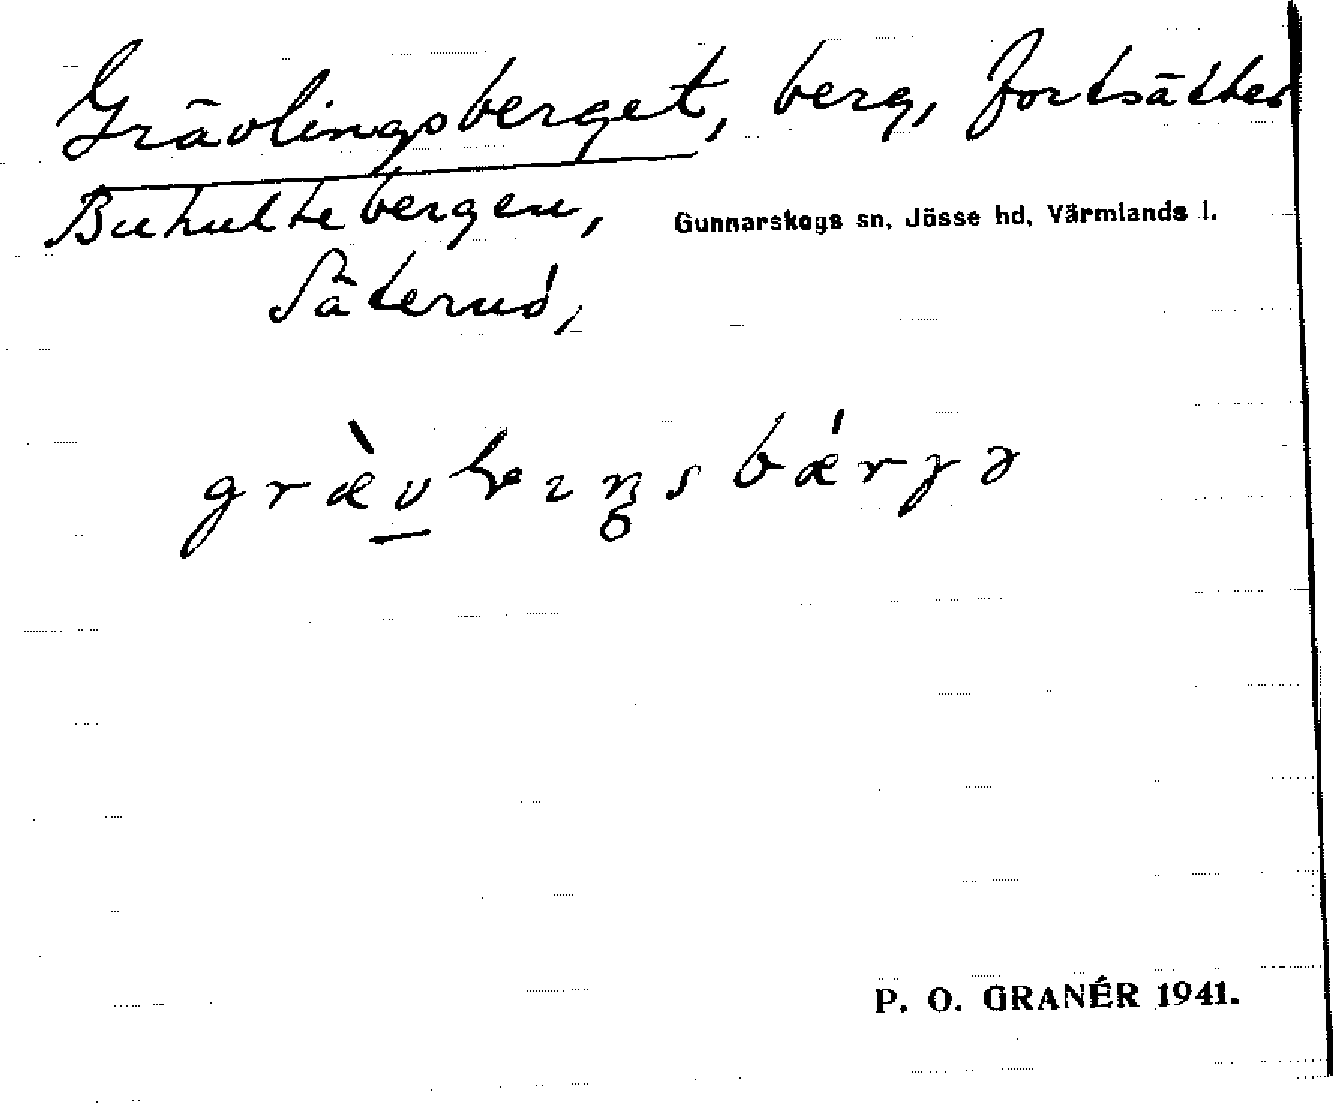 Grävlingsberget, berg, fortsätter
Buhultebergen,
Gunnarskogs sn, Jösse hd, Värmlands l.
Säterud,
P. O. GRANÉR 1941.